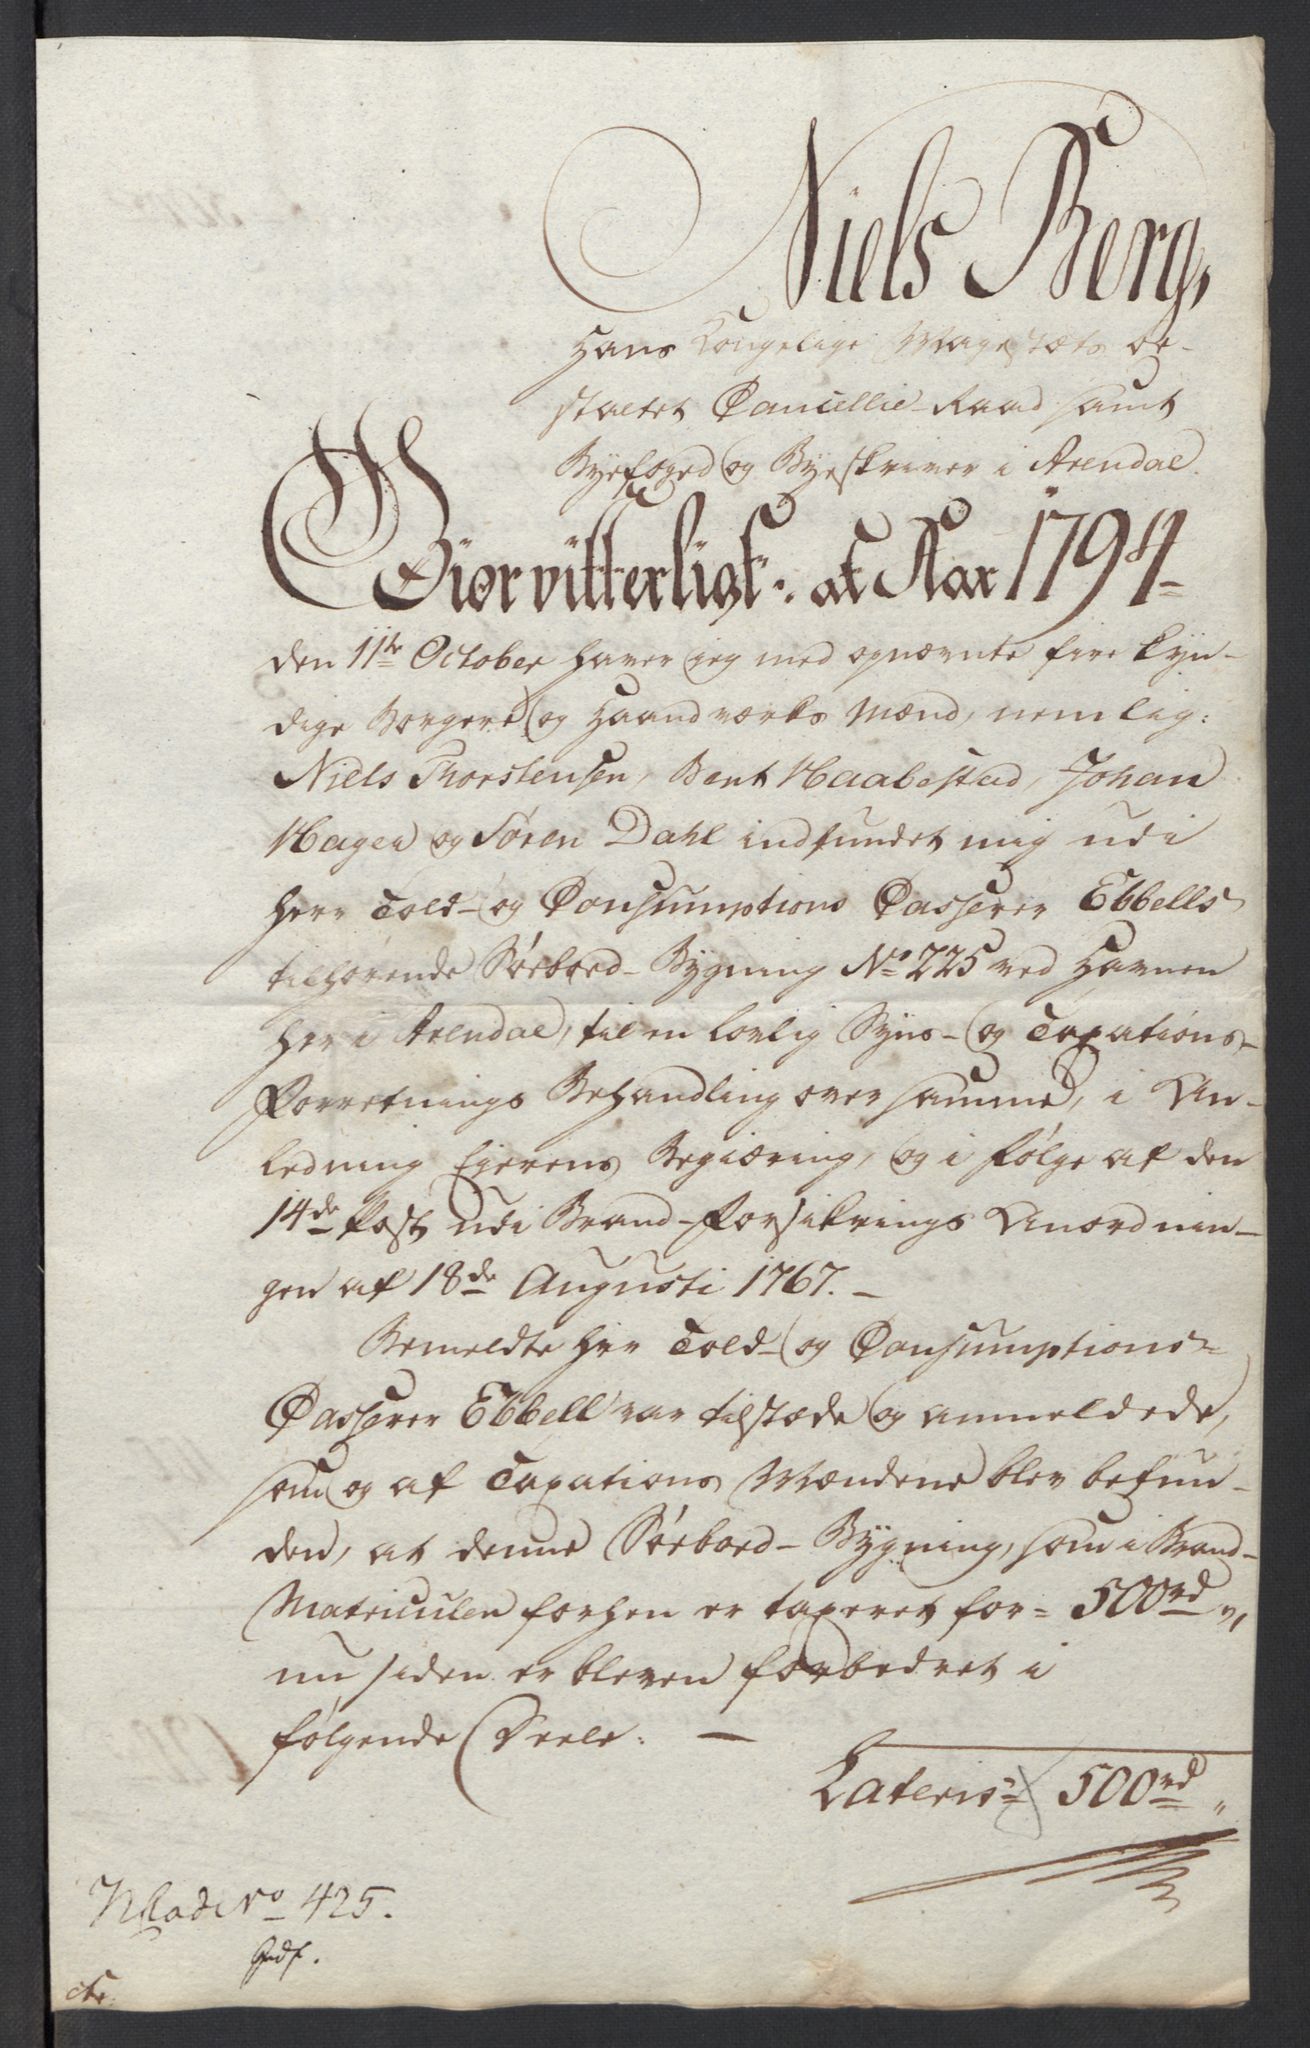 Niels Berg,
Hans Kongelige Mayestæts be-
staltet Cancellie-Raad samt
Byefoged og Byeskriver i Arendal.
Giør vitterligt: at Aar 1794
den 11te October haver jeg med opnævnte fire kyn-
dige Borgere og Haandværks Mænd, nemlig:
Niels Thorstensen, Bent Haabestad, Johan
Hagen og Søren Dahl indfundet mig udi
Herr Told- og Consumptions Casserer Ebbells
tilhørende Søebod-Bygning No 225 ved Havnen
her i Arendal, til en lovlig Syns- og Taxations-
Forretnings Behandling over samme, i An-
ledning Ejerens Begiæring, og i følge af den
14de Post udi Brand-Forsikrings Anordnin-
gen af 18de Augusti 1767. -
Bemeldte Herr Told- og Consumptions-
Casserer Ebbell var tilstæde og anmeldede,
som og af Taxations Mændene blev befun-
den, at denne Søebod-Bygning, som i Brand-
Matriculen forhen er taxeret for = 500 rd ",
nu siden er bleven forbedret i
følgende Deele: -
Lateris = 500 rd "
No 425.